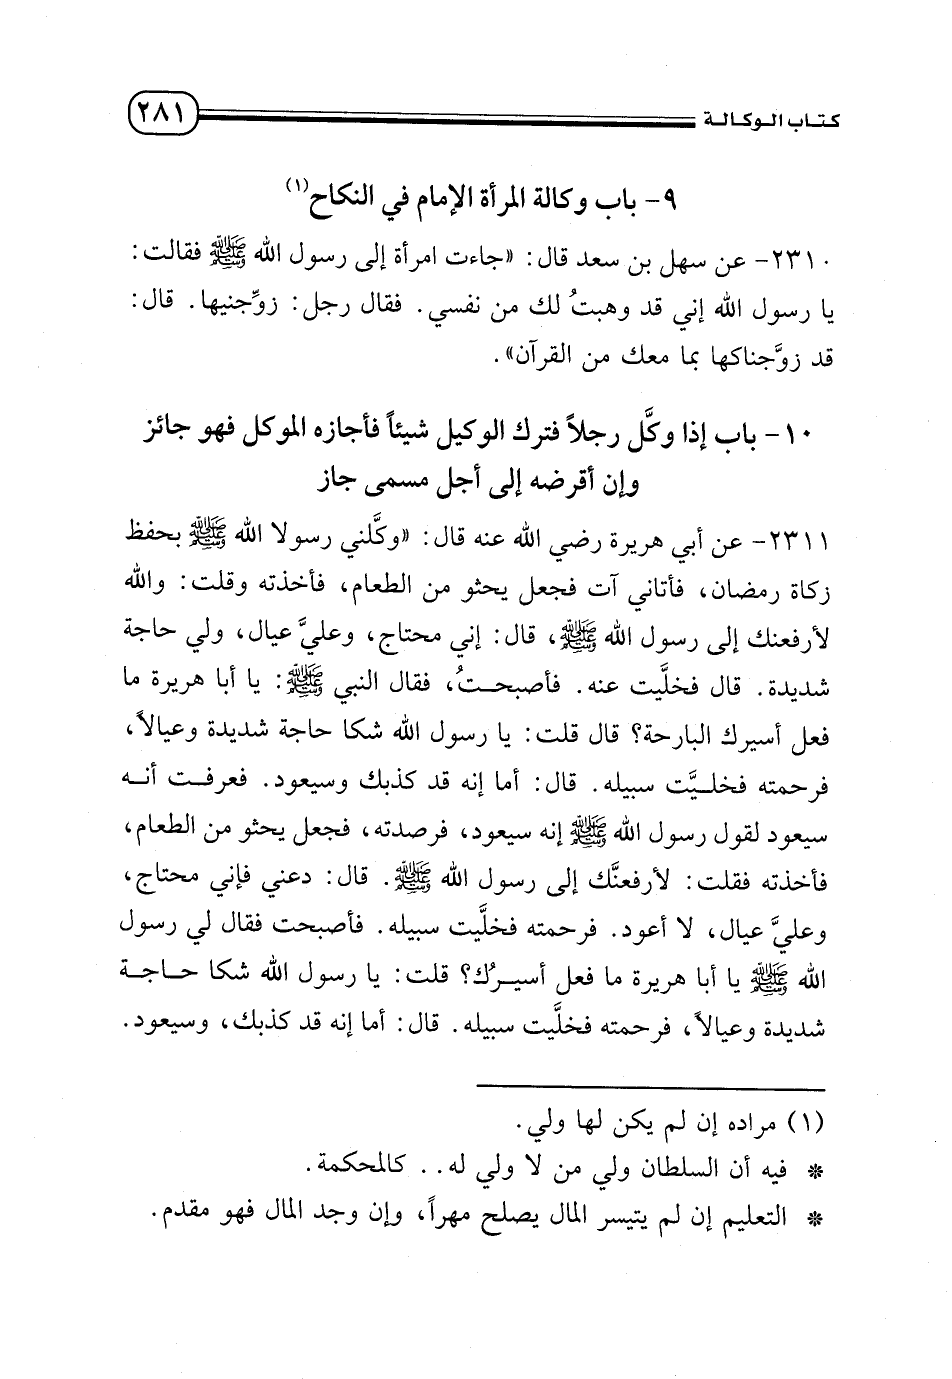 كتاب الوكالة ٢٨١
٩- باب وكالة المرأة الإمام في النكاح(١)
٢٣١٠- عن سهل بن سعد قال: «جاءت امرأة إلى رسول الله ﷺ فقالت:
يا رسول الله إني قد وهبتُ لك من نفسي. فقال رجل: زوِّجنيها. قال:
قد زوَّجناكها بما معك من القرآن».
١٠- باب إذا وكَّل رجلاً فترك الوكيل شيئاً فأجازه الموكل فهو جائز
وإن أقرضه إلى أجل مسمى جاز
٢٣١١- عن أبي هريرة رضي الله عنه قال: «وكَّلني رسولا الله ﷺ بحفظ
زكاة رمضان، فأتاني آت فجعل يحثو من الطعام، فأخذته وقلت: والله
لأرفعنك إلى رسول الله ﷺ، قال: إني محتاج، وعليَّ عيال، ولي حاجة
شديدة. قال فخلَّيت عنه. فأصبحتُ، فقال النبي ﷺ: يا أبا هريرة ما
فعل أسيرك البارحة؟ قال قلت: يا رسول الله شكا حاجة شديدة وعيالاً،
فرحمته فخليَّت سبيله. قال: أما إنه قد كذبك وسيعود. فعرفت أنه
سيعود لقول رسول الله ﷺ إنه سيعود، فرصدته، فجعل يحثو من الطعام،
فأخذته فقلت: لأرفعنَّك إلى رسول الله ﷺ. قال: دعني فإني محتاج،
وعليَّ عيال، لا أعود. فرحمته فخلَّيت سبيله. فأصبحت فقال لي رسول
الله ﷺ يا أبا هريرة ما فعل أسيرُك؟ قلت: يا رسول الله شكا حاجة
شديدة وعيالاً، فرحمته فخلَّيت سبيله. قال: أما إنه قد كذبك، وسيعود.
(١) مراده إن لم يكن لها ولي.
* فيه أن السلطان ولي من لا ولي له.. كالمحكمة.
* التعليم إن لم يتيسر المال يصلح مهراً، وإن وجد المال فهو مقدم.